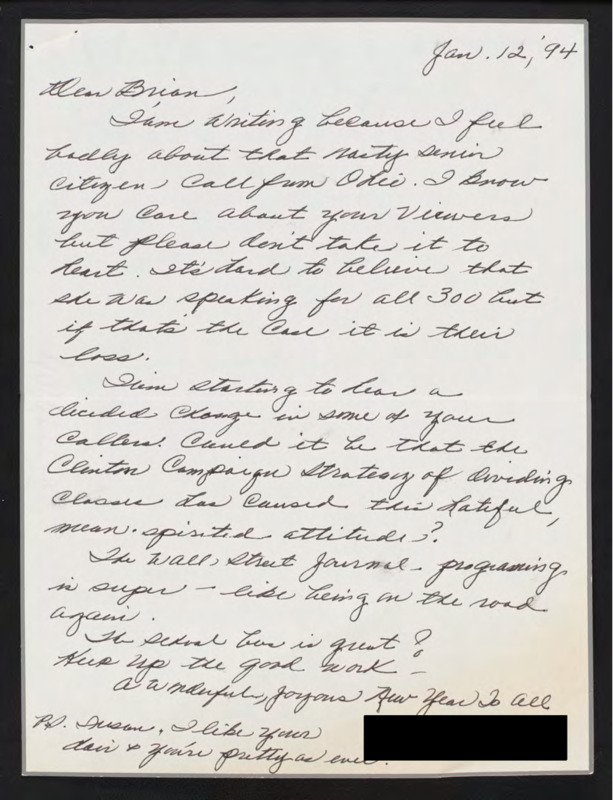 Jan. 12, '94
Dear Brian,
I'am writing because I feel
badly about that nasty senior
citizen call from Ohio. I know
you care about your viewers
but please don't take it to
heart. It's hard to believe that
she was speaking for all 300 but
if thats the case it is their
loss.
I'am starting to hear a
decided change in some of your
callers. Could it be that the
Clinton Campaign Strategy of dividing
classes has caused this hateful,
mean-spirited attitude?
The Wall Street Journal - programing
is super - like being on the road
again.
The school bus is great!
Keep up the good work -
A wonderful, joyous New Year to all
P.S. Susan, I like your
hair & you're pretty as ever.